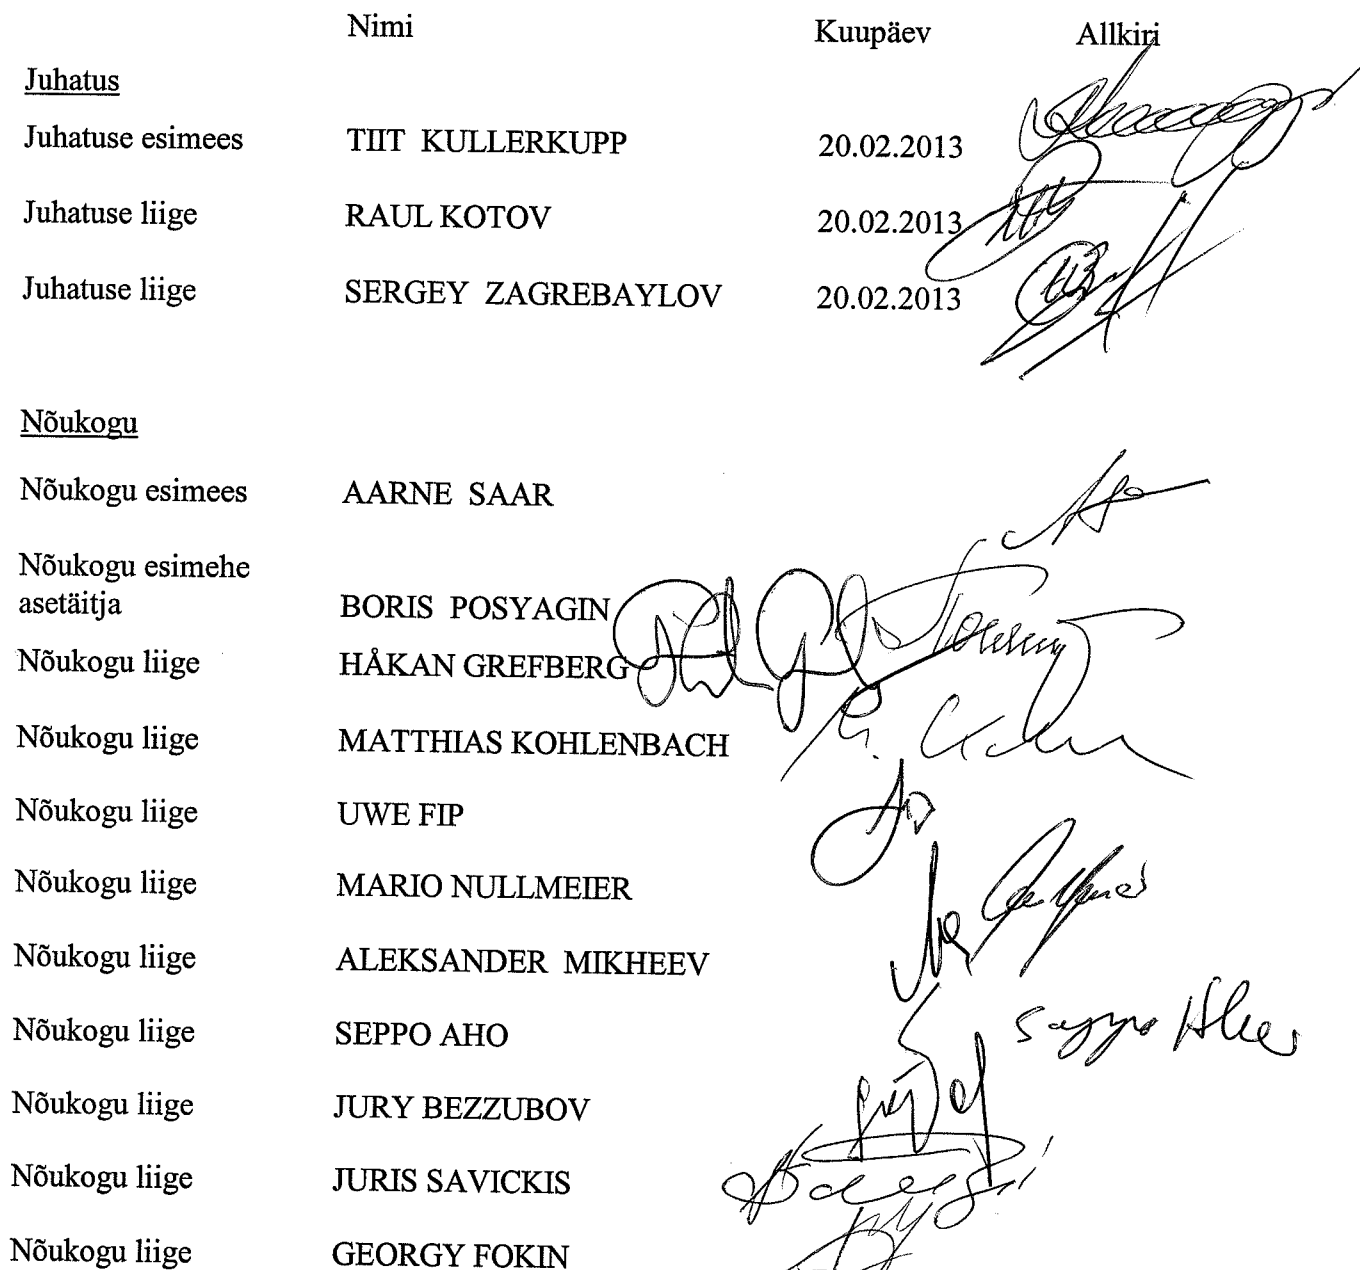 Nimi Kuupäev Allkiri
Juhatus
Juhatuse esimees TIIT KULLERKUPP 20.02.2013
Juhatuse liige RAUL KOTOV 20.02.2013
Juhatuse liige SERGEY ZAGREBAYLOV 20.02.2013
Nõukogu
Nõukogu esimees AARNE SAAR
Nõukogu esimehe
asetäitja BORIS POSYAGIN
Nõukogu liige HÅKAN GREFBERG
Nõukogu liige MATTHIAS KOHLENBACH
Nõukogu liige UWE FIP
Nõukogu liige MARIO NULLMEIER
Nõukogu liige ALEKSANDER MIKHEEV
Nõukogu liige SEPPO AHO
Nõukogu liige JURY BEZZUBOV
Nõukogu liige JURIS SAVICKIS
Nõukogu liige GEORGY FOKIN